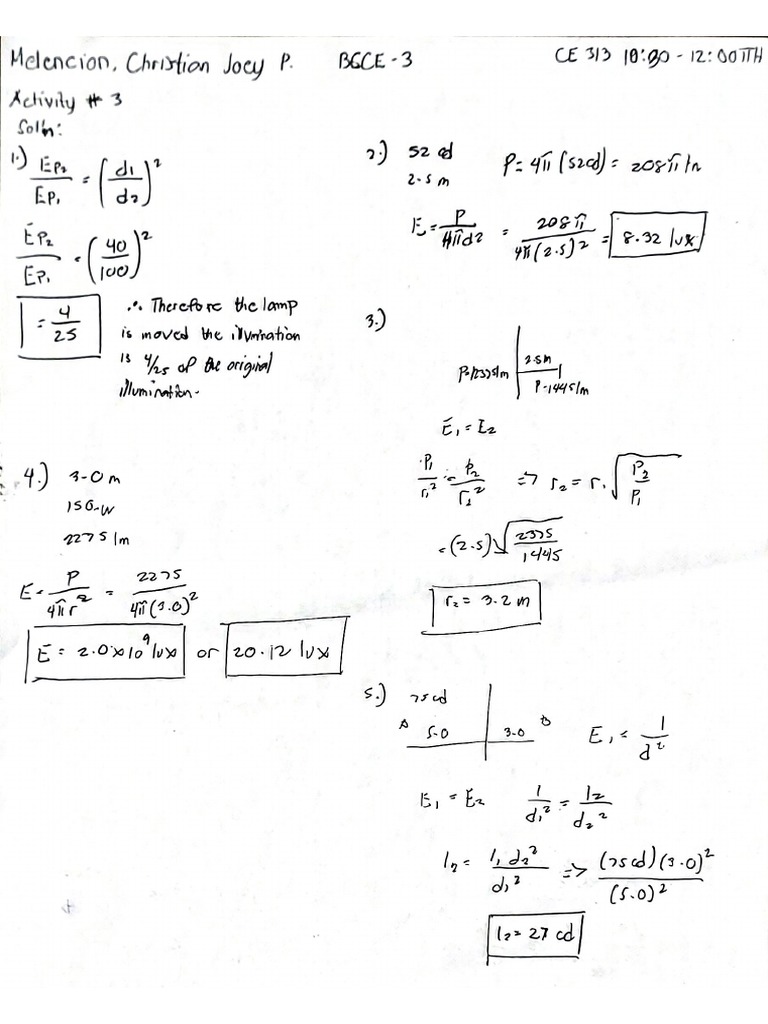 Melencion, Christian Joey P. BSCE - 3 CE 313 10:30 - 12:00 TTH
Activity # 3
Soln:
1.) Ep₂/Ep₁ = (d₁/d₂)²
Ep₂/Ep₁ = (40/100)²
= 4/25
∴ Therefore the lamp
is moved the illumination
is 4/25 of the original
illumination.
2.) 52 cd P = 4π (52cd) = 208π lm
2.5 m
E = P/4πd2 = 208π/4π(2.5)² = 8.32 lux
3.)
2.5m
P-1445/m
E₁ = E₂
P₁/r₁² = P₂/r₂² => r₂ = r₁ √P₂/P₁
= (2.5)√2375/1445
r₂ = 3.2 m
4.) 3.0 m
150-W
2275 lm
E = P/4πr² = 2275/4π(3.0)²
E = 2.0x10⁹ lux or 20.12 lux
5.) 75cd
A 5.0 3.0 B E₁ = 1/d²
E₁ = E₂ 1/d₁² = I₂/d₂²
I₂ = I₁ d₂²/d₁² => (75cd)(3.0)²/(5.0)²
I₂ = 27 cd